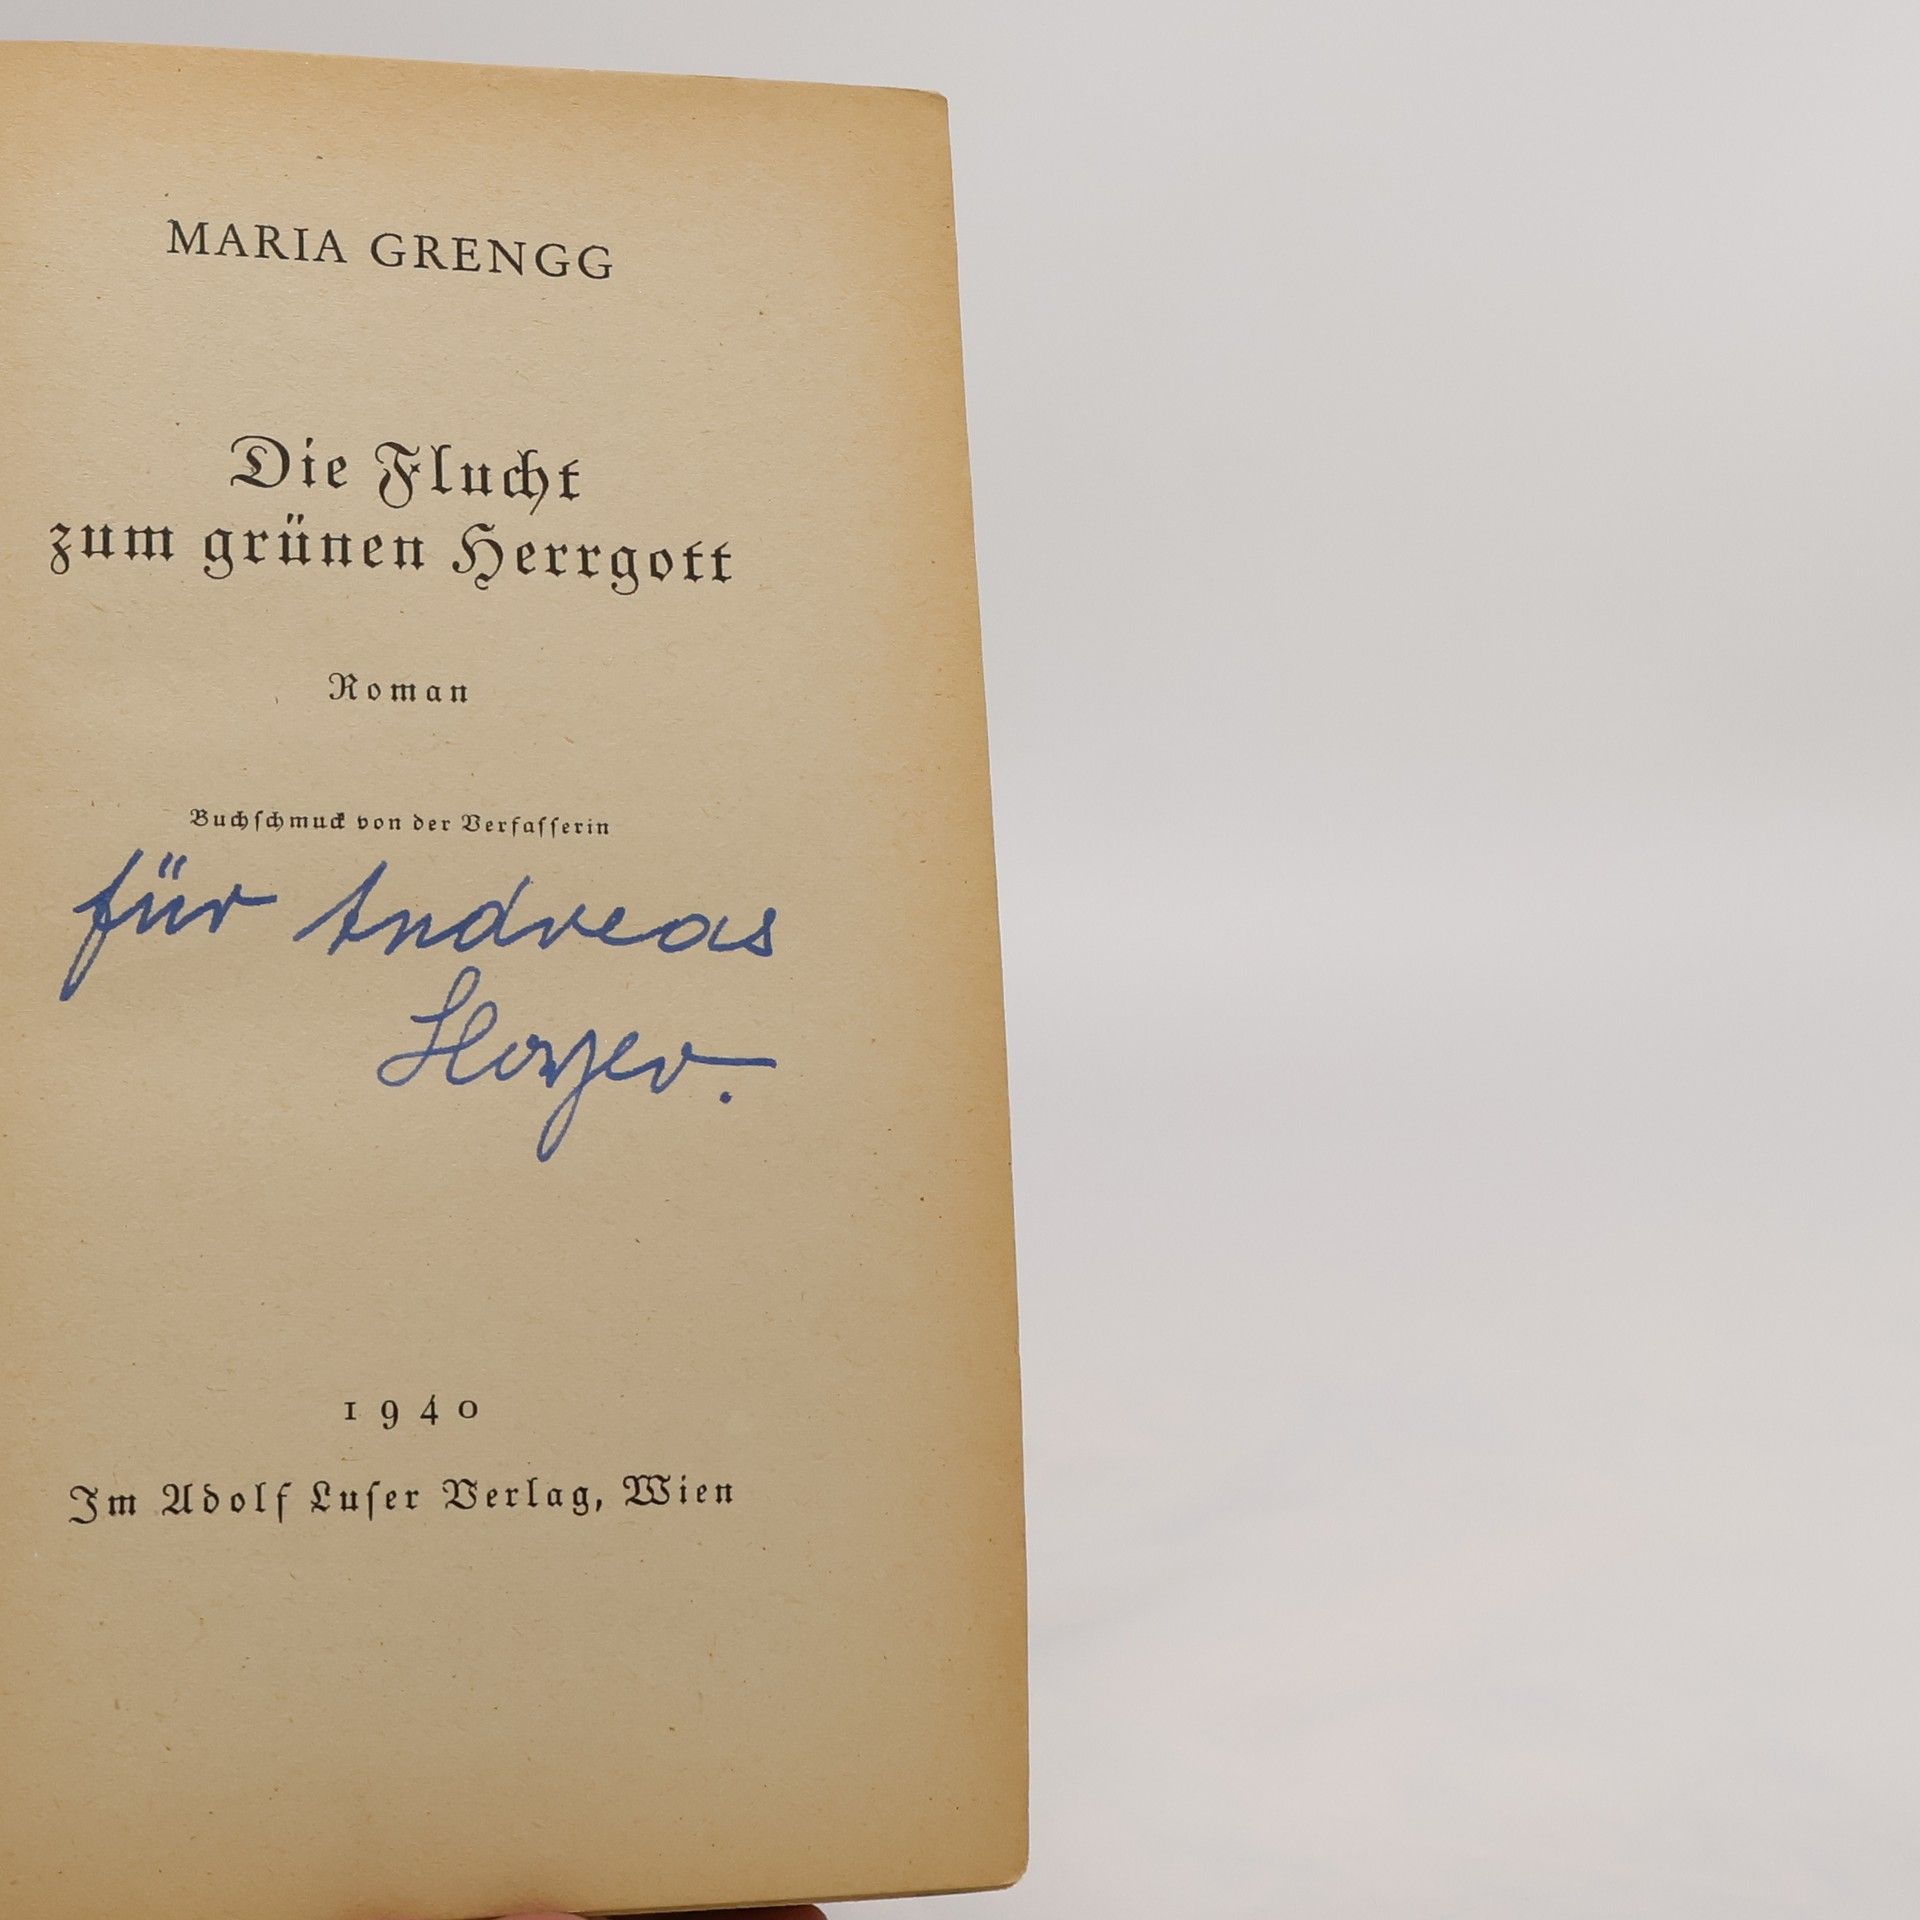 MARIA GRENGG
Die Flucht
zum grünen Herrgott
Roman
Buchſchmuck von der Verfaſſerin
für Andreas
Hoyer.
1940
Im Adolf Luſer Verlag, Wien